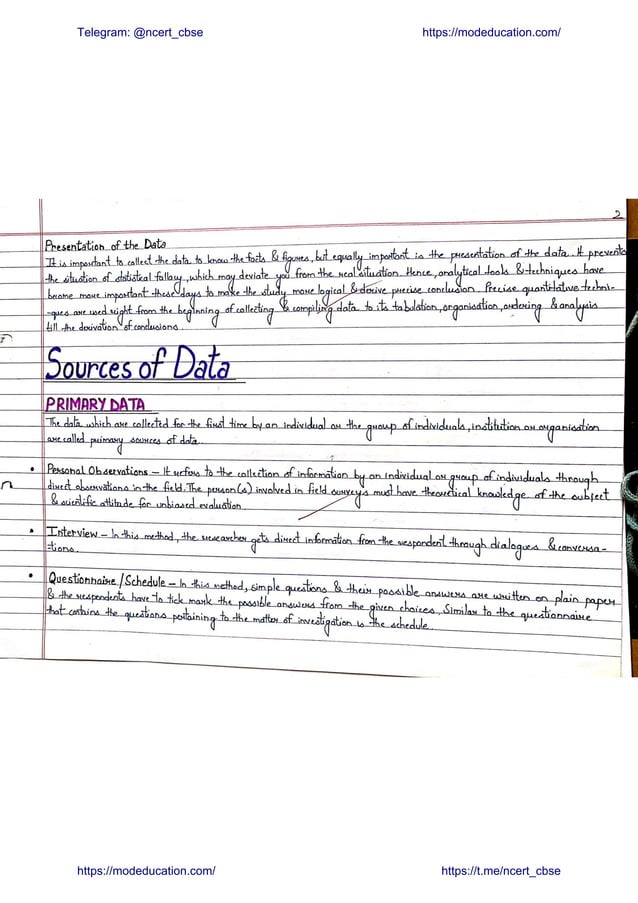 Telegram: @ncert_cbse https://modeducation.com/
2
Presentation of the Data
It is important to collect the data to know the facts & figures, but equally important is the presentation of the data. It prevents
the situation of statistical fallacy, which may deviate you from the real situation. Hence, analytical tools & techniques have
become more important these days to make the study more logical & derive precise conclusion. Precise quantitative techni-
-ques are used right from the beginning of collecting & compiling data to its tabulation, organisation, ordering & analysis
till the derivation of conclusions.
Sources of Data
PRIMARY DATA
The data which are collected for the first time by an individual or the group of individuals, institution or organisation
are called primary sources of data.
• Personal Observations – It refers to the collection of information by an individual or group of individuals through
direct observations in the field. The person(s) involved in field surveys must have theoretical knowledge of the subject
& scientific attitude for unbiased evaluation.
• Interview – In this method, the researcher gets direct information from the respondent through dialogues & conversa-
-tions.
• Questionnaire/Schedule – In this method, simple questions & their possible answers are written on plain paper
& the respondents have to tick mark the possible answers from the given choices. Similar to the questionnaire
that contains the questions pertaining to the matter of investigation is the schedule.
https://modeducation.com/ https://t.me/ncert_cbse